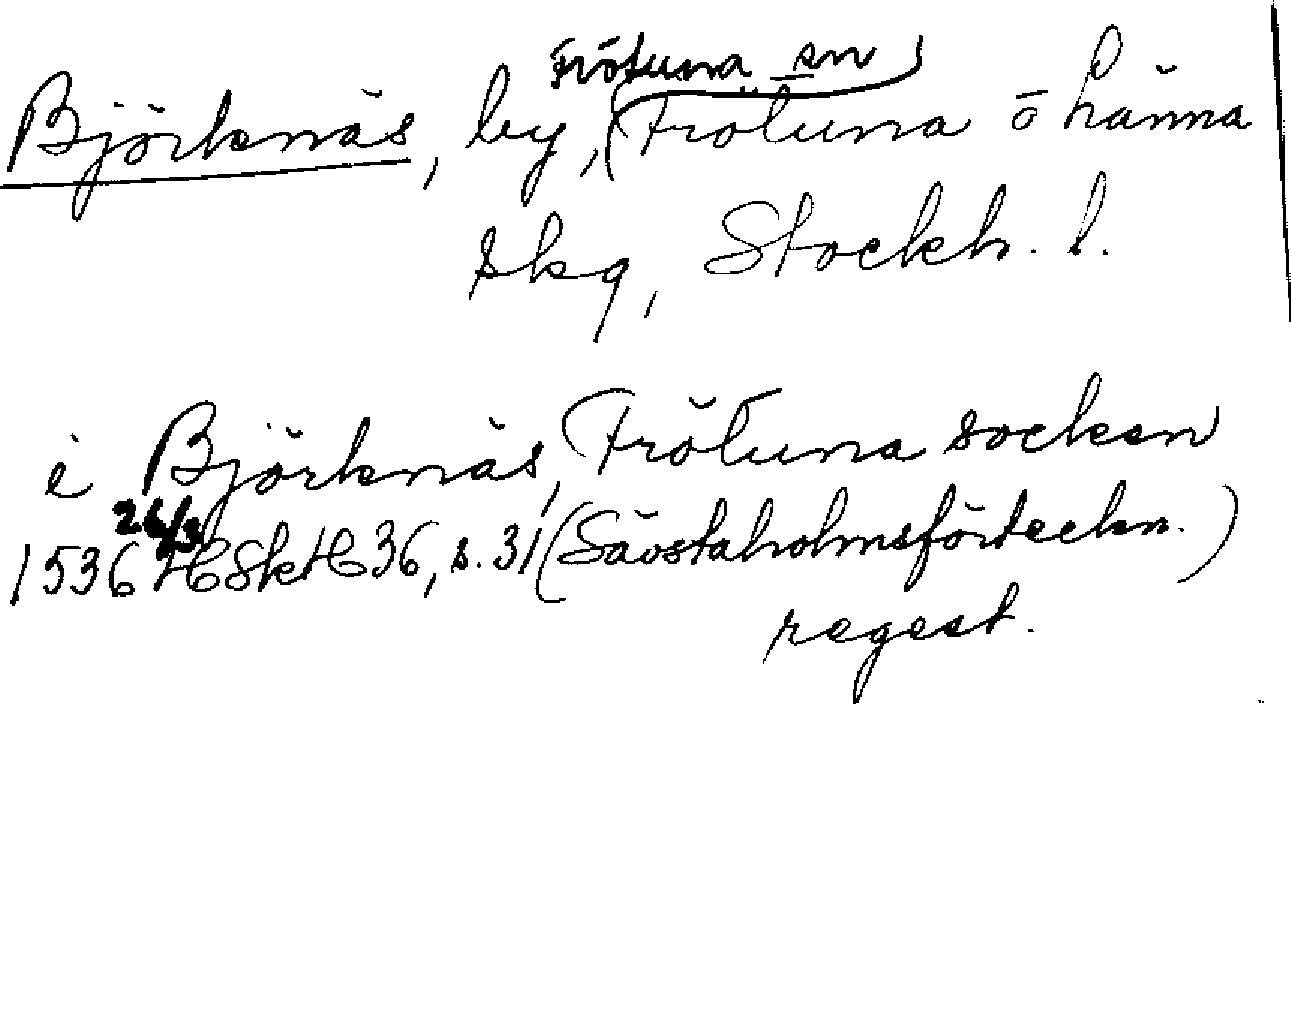 Frötuna sn
Björknäs, by, (Frötuna o Länna
skg, Stockh. l.
i Björknäs, Frötuna socken
26/3
1536 HSkH 36, s. 31 (Sävstaholmsförteckn.)
regest.